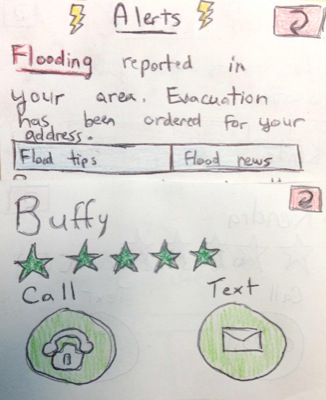 Alerts
Flooding reported in
your area. Evacuation
has been ordered for your
address.
Flood tips
Flood news
Buffy
Call
Text